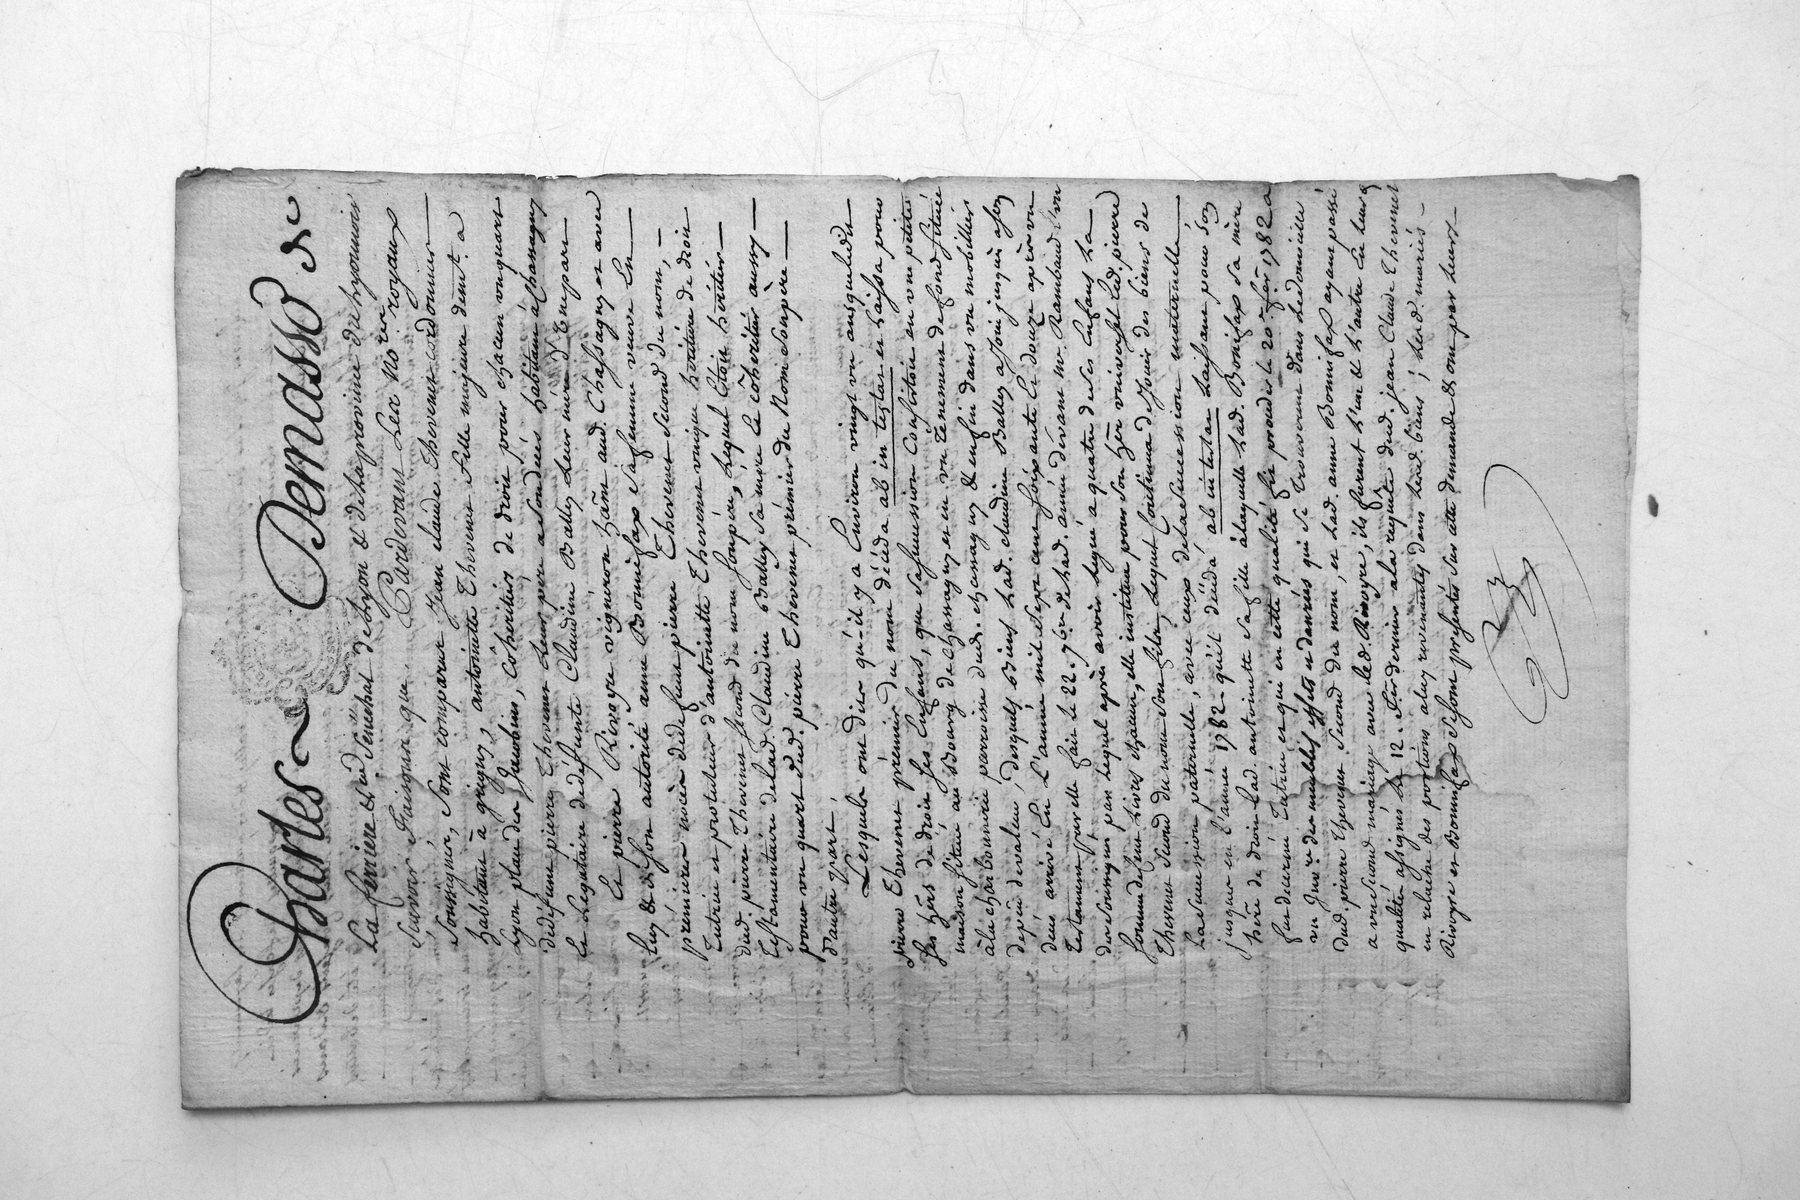 Charles Demasso de
La ferriere &c. Senechal de Lyon & de la province du Lyonnois
Sçavoir faisons que Pardevant Les No.res royaux
Soussignés, Sont comparus Jean claude Thevenet cordonnier
habitant à grigny, antoinette Thevenet fille majeure demt. a
Lyon place des Jacobins, Cohéritiers de droit pour chacun un quart
de défunt pierre Thevenet Leur père a Son décès habitant à Chassagny
Et Legataire de défunte Claudine Bally Leur mère d'Une part
Et pierre Rivoyre vigneron habt. aud. Chassagny et avec
Luy & de son autorité anne Bonnifax Sa femme veuve En
premieres noces dudit feu pierre Thevenet Second du nom,
Tutrice et protutrice d'antoinette Thevenet unique héritiere de droit
dud. pierre Thevenet Second du nom Son père, Lequel Etoit héritier
Testamentaire de Lad. Claudine Bally Sa mère Et cohéritier aussy
pour un quart dud. pierre Thevenet premier du Nom Son père
D'autre part
Lesquels ont dit qu'il y a Environ vingt un ans que ledit
pierre Thevenet premier du nom décéda ab in testat et Laissa pour
Ses hérs. de droit Ses Enfans, que Sa Succession Consistoit en une petite
maison Située au Bourg de Chassagny et en un Tenement de fond Situé
à La charbonniere parroisse dud. chassagny & enfin dans un mobillier
de peu de valeur, desquels Biens Lad. claudine Bally a Joui jusqu'à Son
deces arrivé En L'année mil Sept cent Soixante Et douze après un
Testament par elle fait Le 22. 7.bre de Lad. année devant Mr. Rambaud L'un
des Soussignés par Lequel après avoir Legué a quatre de Ses Enfans La
Somme de Sept Livres chacun, elle institua pour Son hér. universel Led. pierre
Thevenet Second du nom Son fils, Lequel Continua de Jouir des biens de
La Succession paternelle, avec ceux de La Succession maternelle
jusques en L'année 1782 qu'il décéda ab in testat Laissant pour Son
hére. de droit Lad. antoinette Sa fille à laquelle Lad. Bonifax Sa mère
fut decernée Tutrice et qui en cette qualité fit proceder le 20 1782 a
un Inv.re des meubles effets et danrées qui Se trouverent dans Le domicille
dud. pierre Thevenet Second du nom, et Lad. anne Bonnifax ayant passé
a un Second mariage avec led. Rivoyre, ils furent L'un & L'autre En Leurs
qualités assignés Le 12. dernier a la requête dud. jean Claude Thevenet
en relache des portions a luy revenantes dans Lesd. biens; Lesd. mariés
Rivoyre et Bonnifax Se Sont présentés Sur cette demande & ont par Leurs